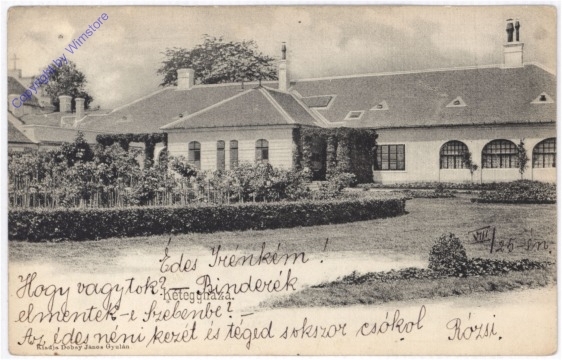 Copyright by Wimstore
VIII/25-én.
Édes Irénkém!
Hogy vagytok? – Binderék
Kétegyháza.
elmentek-e Szebenbe? –
Az édes néni kezét és téged sokszor csókol Rózsi.
Kiadja Dobay János Gyulán